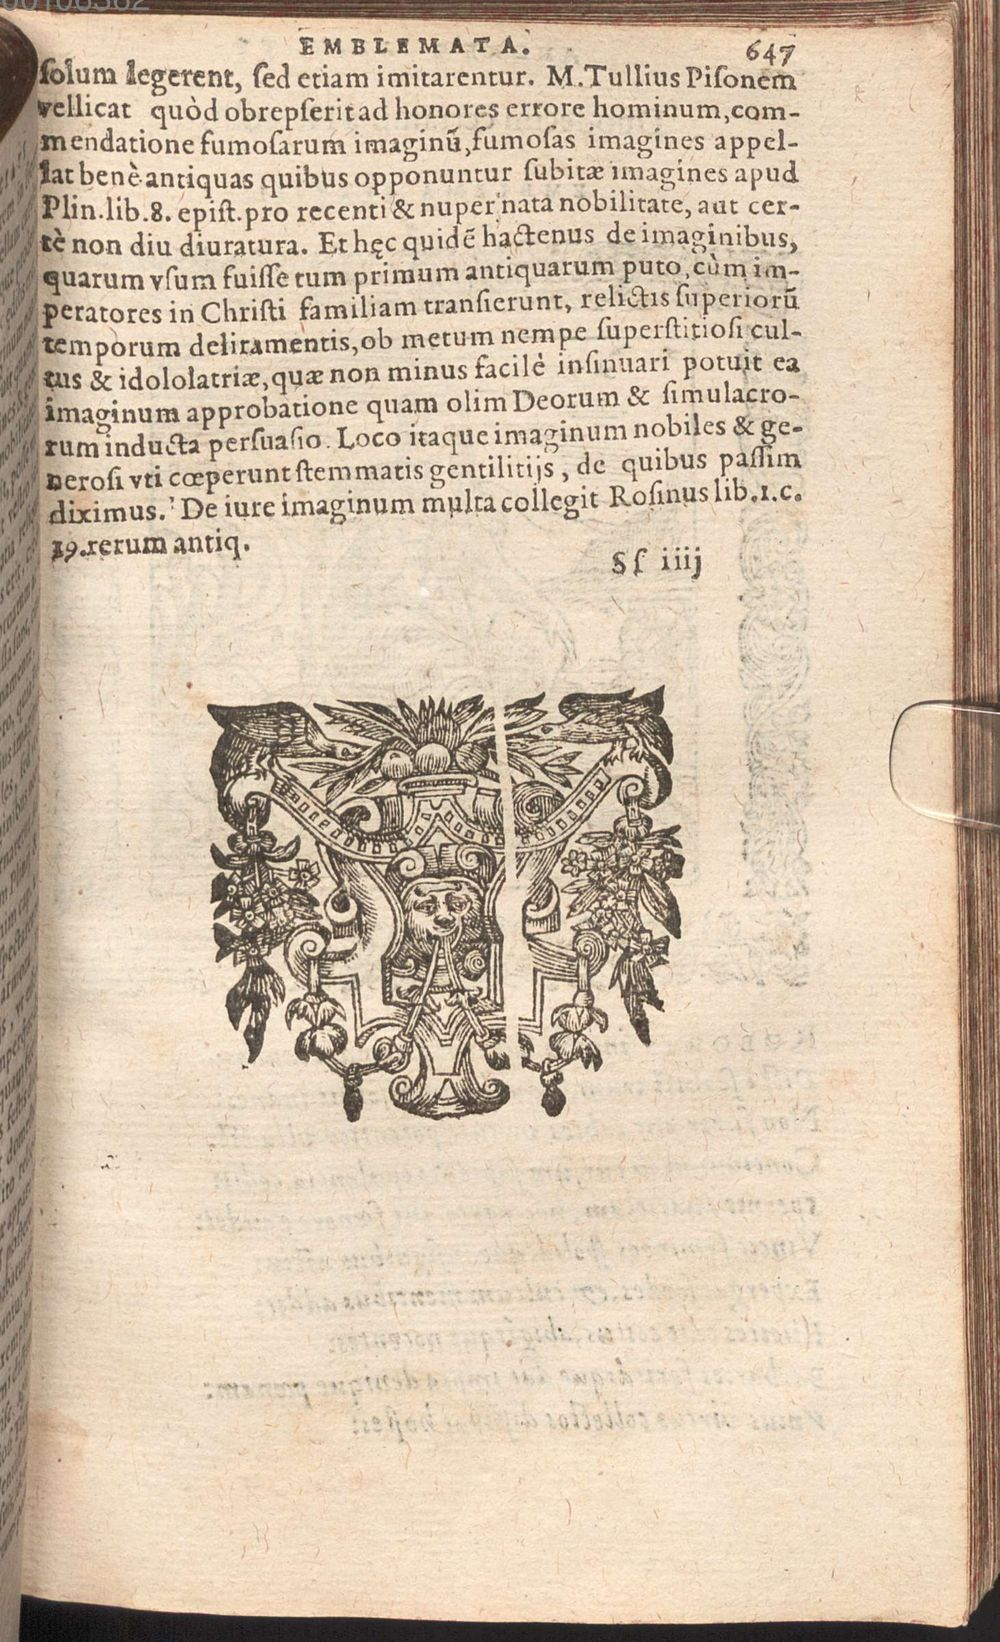 EMBLEMATA. 647
ſolum legerent, ſed etiam imitarentur. M. Tullius Piſonem
vellicat quòd obrepſerit ad honores errore hominum, com-
mendatione fumoſarum imaginū, fumoſas imagines appel-
lat benè antiquas quibus opponuntur ſubitæ imagines apud
Plin. lib. 8. epiſt. pro recenti & nuper nata nobilitate, aut cer-
tè non diu diuratura. Et hęc quidē hactenus de imaginibus,
quarum vſum fuiſſe tum primum antiquarum puto, cùm im-
peratores in Chriſti familiam tranſierunt, relictis ſuperiorū
temporum deliramentis, ob metum nempe ſuperſtitioſi cul-
tus & idololatriæ, quæ non minus facilè inſinuari potuit ea
imaginum approbatione quam olim Deorum & ſimulacro-
rum inducta perſuaſio. Loco itaque imaginum nobiles & ge-
neroſi vti cœperunt ſtemmatis gentilitijs, de quibus paſſim
diximus. De iure imaginum multa collegit Roſinus lib. 1. c.
19. rerum antiq.
Sſ iiij